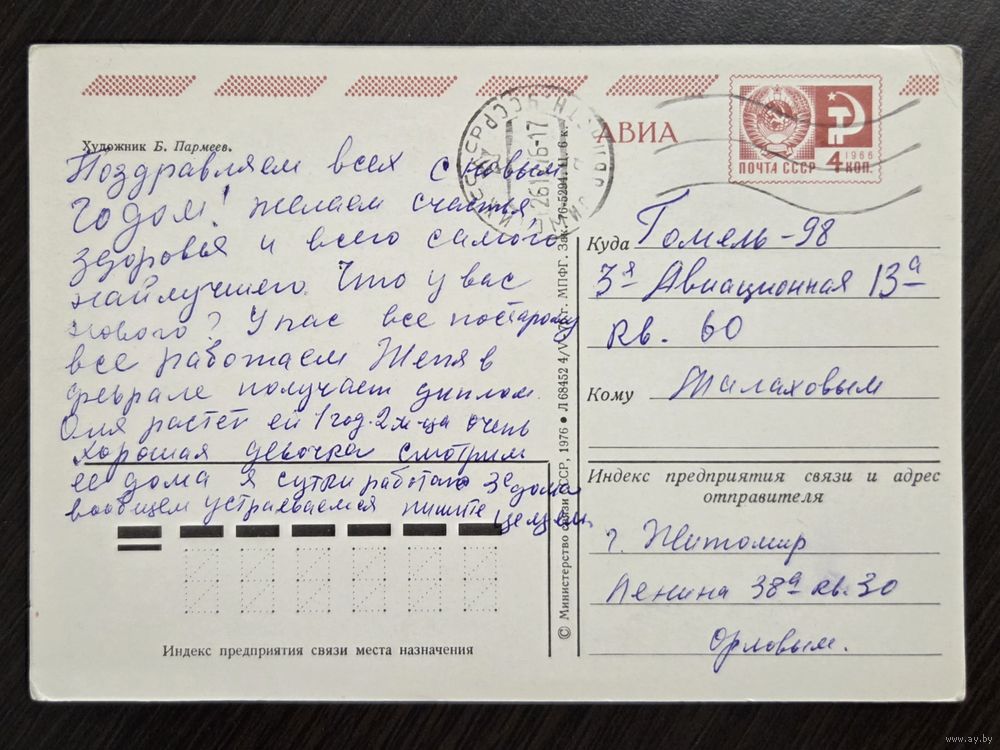 АВИА
1966
ПОЧТА СССР 4 КОП.
Художник Б. Пармеев.
Поздравляем всех с новым
годом! желаем счастья,
здоровья и всего самого
найлучшего. Что у вас
нового? У нас все постарому
все работаем Женя в
феврале получает диплом.
Оля растет ей 1 год. 2 м-ца очень
хорошая девочка смотрим
ее дома я сутки работаю 3е дома
вообщем устраеваемся пишите целуем
Индекс предприятия связи места назначения
© Министерство связи СССР, 1976 ● Л 68452 4/V МПФГ. Зак. 76-5294. Ц. 6 к.
Куда Гомель-98
3я Авиационная 13а
кв. 60
Кому Малаховым
Индекс предприятия связи и адрес
отправителя
г. Житомир
Ленина 38а кв. 30
Орловым.
www.ay.by